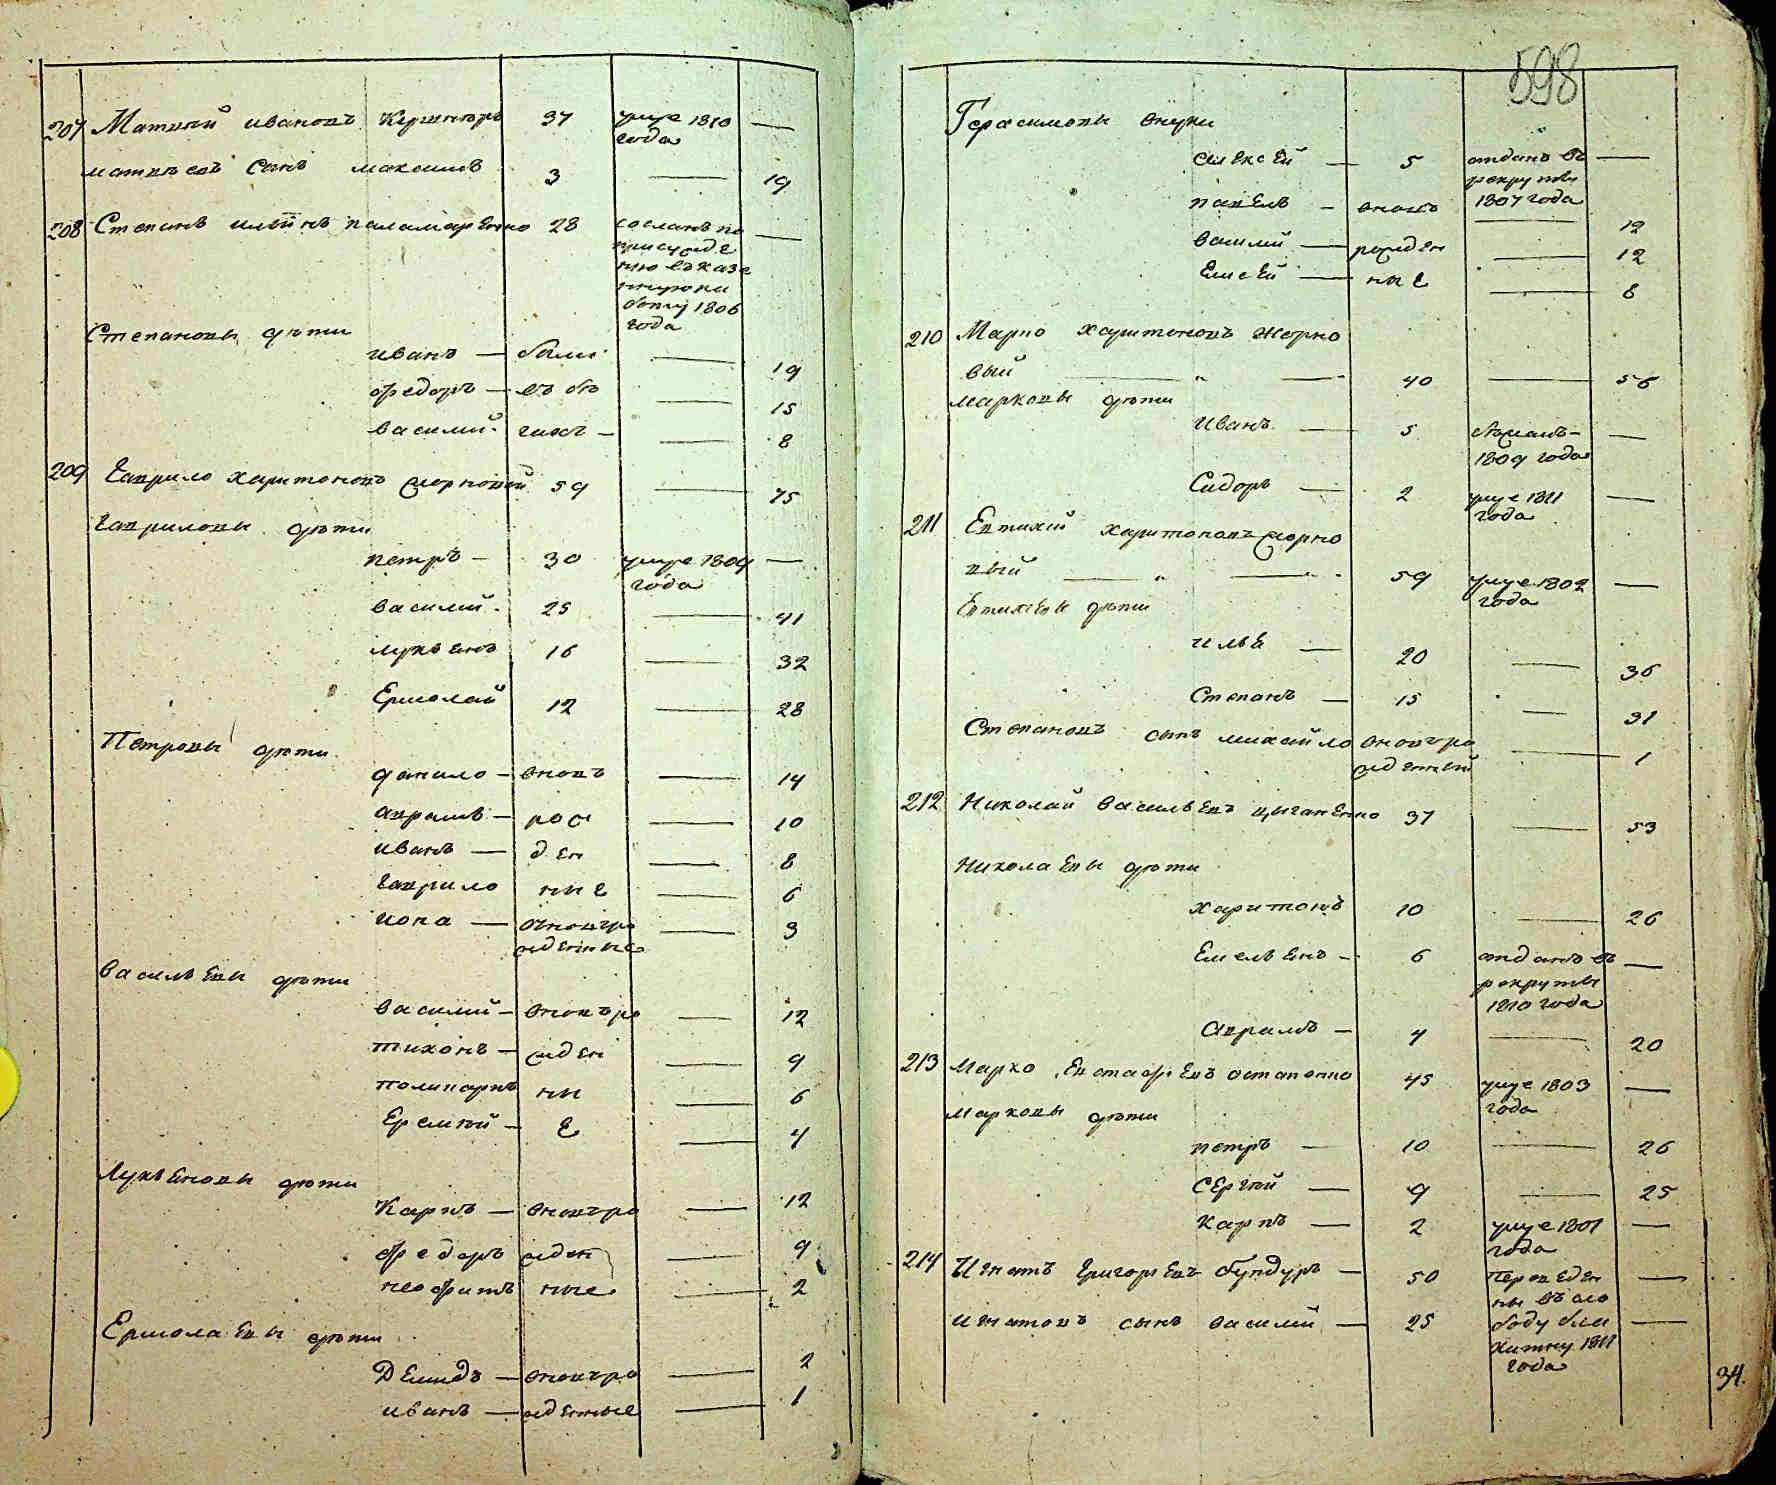 207 Матвѣй ивановъ Кушниръ 37 умре 1810 года —
матвѣевъ Сынъ максимъ 3 — 19
208 Степанъ ильинъ паламаренко 28 сосланъ по
присужде
нию въ казе
нную ра
боту 1806
года —
Степановы дѣти
иванъ — были — 19
федоръ — въ бѣ — 15
василий гахъ — — 8
209 Гаврило харитоновъ жорновый 59 — 75
Гавриловы дѣти
петръ — 30 умре 1809
года —
василий 25 — 41
лукьянъ 16 — 32
Ермолай 12 — 28
Петровы дѣти
данило — вновъ — 14
аврамъ — рож — 10
иванъ — ден — 8
Гаврило ные — 6
иона — вновъро
жденные — 3
васильевы дѣти
василий — вновъро — 12
тихонъ — жден — 9
поликарпъ ны — 6
Еремѣй — е — 4
Лукьяновы дѣти
Карпъ — вновъро — 12
федоръ жден — 9
неофитъ ные — 2
Ермолаевы дѣти
Демидъ — вновъро — 2
иванъ — жденные — 1
598
Герасимовы внуки
алексей — 5 отданъ въ
рекруты
1807 года —
павелъ — вновъ — 12
василий — рожден — 12
Елисей — ные — 8
210 Марко харитоновъ Жорно
вый — " — 40 — 56
марковы дѣти
иванъ — 5
1809 года —
Сидоръ — 2 умре 1811
года —
211 Евтихий харитоновъ жорно
вый — " — 59 умре 1802
года —
Евтихевы дѣти
илья — 20 — 36
Степанъ — 15 — 31
Степановъ сынъ михайло вновъро
жденный — 1
212 Николай васильевъ цыганенко 37 — 53
Николаевы дѣти
харитонъ 10 — 26
Емельянъ — 6 отданъ въ
рекруты
1810 года —
аврамъ — 4 — 20
213 Марко Евстафьевъ остапенко 45 умре 1803
года —
марковы дѣти
петръ — 10 — 26
Сергѣй — 9 — 25
карпъ — 2 умре 1801
года —
214 Игнатъ Григорьевъ бундуръ — 50 переведен —
ны въ сло
игнатовъ сынъ василий — 25 боду —
1811
года
34.